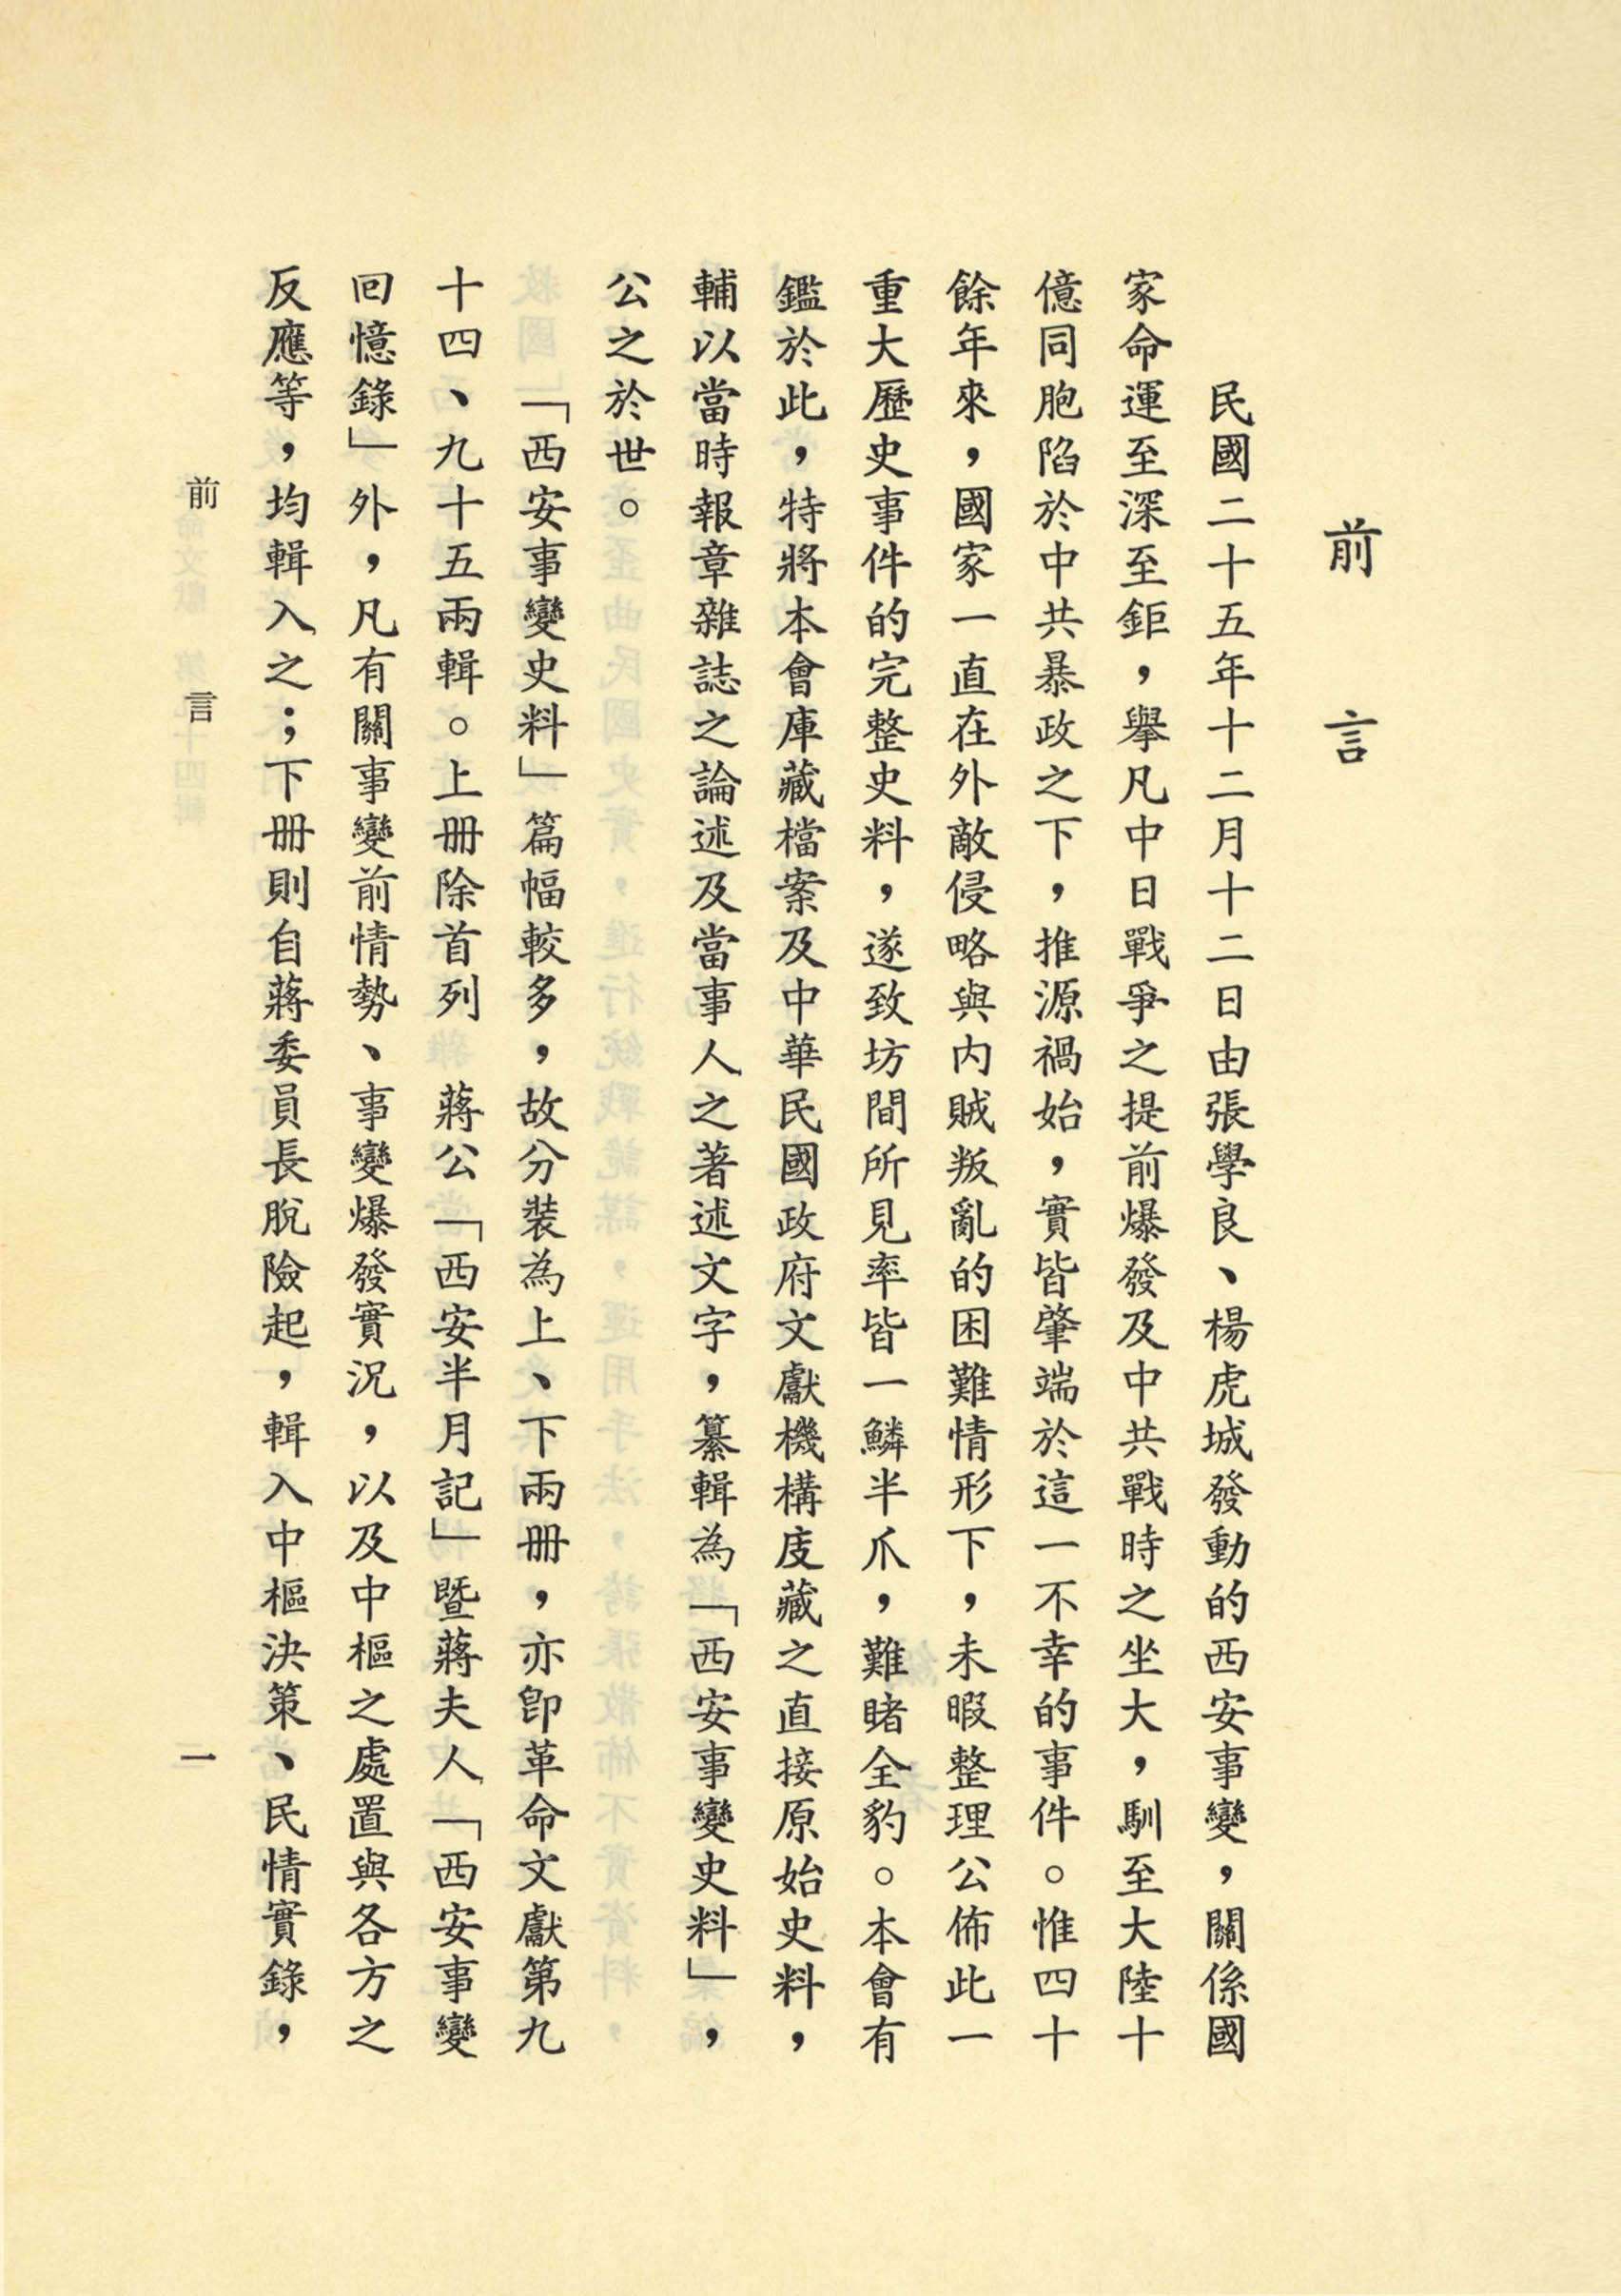 前言
民國二十五年十二月十二日由張學良、楊虎城發動的西安事變，關係國
家命運至深至鉅，舉凡中日戰爭之提前爆發及中共戰時之坐大，馴至大陸十
億同胞陷於中共暴政之下，推源禍始，實皆肇端於這一不幸的事件。惟四十
餘年來，國家一直在外敵侵略與內賊叛亂的困難情形下，未暇整理公佈此一
重大歷史事件的完整史料，遂致坊間所見率皆一鱗半爪，難睹全豹。本會有
鑑於此，特將本會庫藏檔案及中華民國政府文獻機構庋藏之直接原始史料，
輔以當時報章雜誌之論述及當事人之著述文字，纂輯為「西安事變史料」，
公之於世。
「西安事變史料」篇幅較多，故分裝為上、下兩冊，亦卽革命文獻第九
十四、九十五兩輯。上冊除首列　蔣公「西安半月記」暨蔣夫人「西安事變
回憶錄」外，凡有關事變前情勢、事變爆發實況，以及中樞之處置與各方之
反應等，均輯入之；下冊則自蔣委員長脫險起，輯入中樞決策、民情實錄，
前言
一